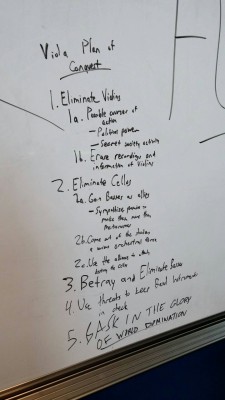 Viola Plan of
Conquest
1. Eliminate Violins
1a. Possible courses of
action
- Political power
- Secret society activity
1b. Erase recordings and
information of Violins
2. Eliminate Cellos
2a. Gain Basses as allies
- Sympathize
make them more than
2b. Come out of the shadows,
a major orchestral force
2c. Use the alliance to attack
3. Betray and Eliminate Basses
4. Use threats to keep Band Instruments
in check
5. BASK IN THE GLORY
OF WORLD DOMINATION